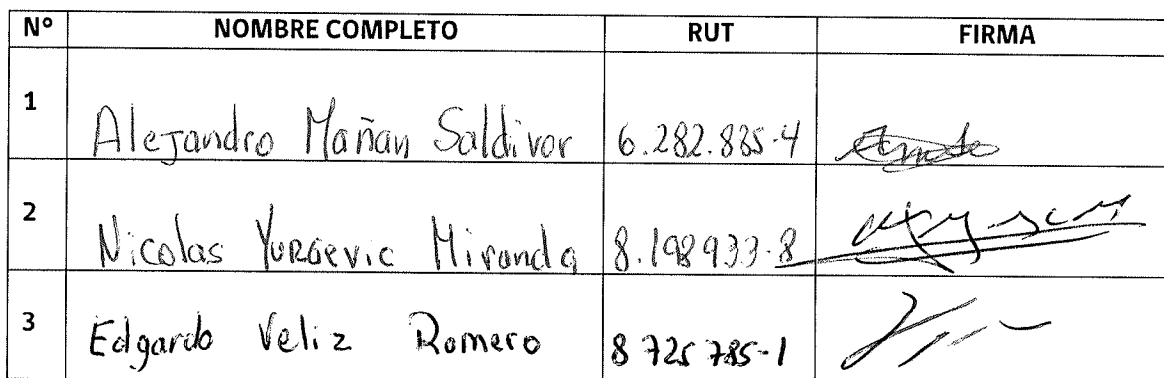 N° NOMBRE COMPLETO RUT FIRMA
1 Alejandro Mañan Saldivar 6.282.835-4
2 Nicolas Yuraevic Miranda 8.198933-8
3 Edgardo Veliz Romero 8 725 785-1